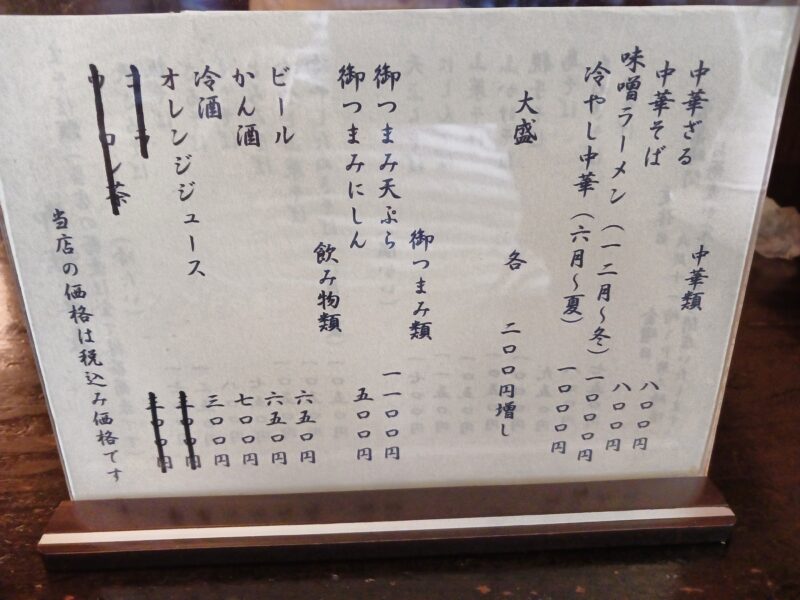 中華類
中華ざる 八〇〇円
中華そば 八〇〇円
味噌ラーメン(一二月~冬)一〇〇〇円
冷やし中華(六月~夏)一〇〇〇円
大盛 各 二〇〇円増し
御つまみ類
御つまみ天ぷら 一一〇〇円
御つまみにしん 五〇〇円
飲み物類
ビール 六五〇円
かん酒 六五〇円
冷酒 七〇〇円
オレンジジュース 三〇〇円
コーラ 三〇〇円
ウーロン茶 三〇〇円
当店の価格は税込み価格です